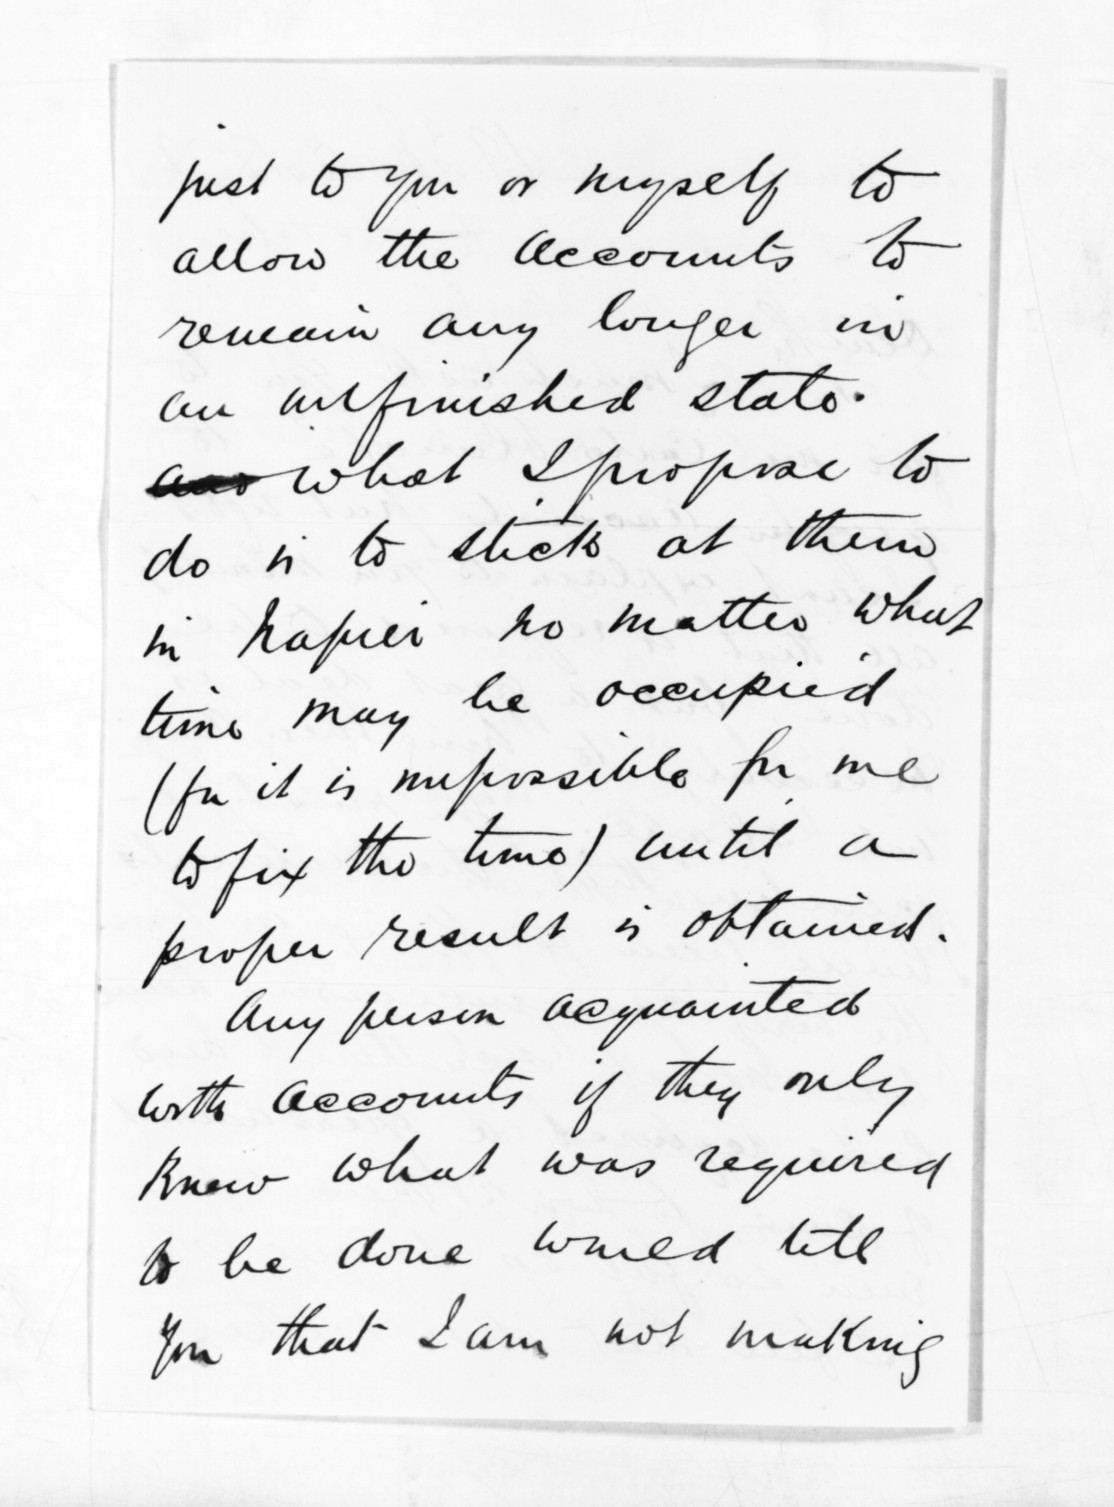 just to you or myself to
allow the Accounts to
remain any longer in
an unfinished state.
and what I propose to
do is to stick at them
in Napier no matter what
time may be occupied
(for it is impossible for me
to fix the time) until a
proper result is obtained.
Any person acquainted
with Accounts if they only
knew what was required
to be done would tell
you that I am not making